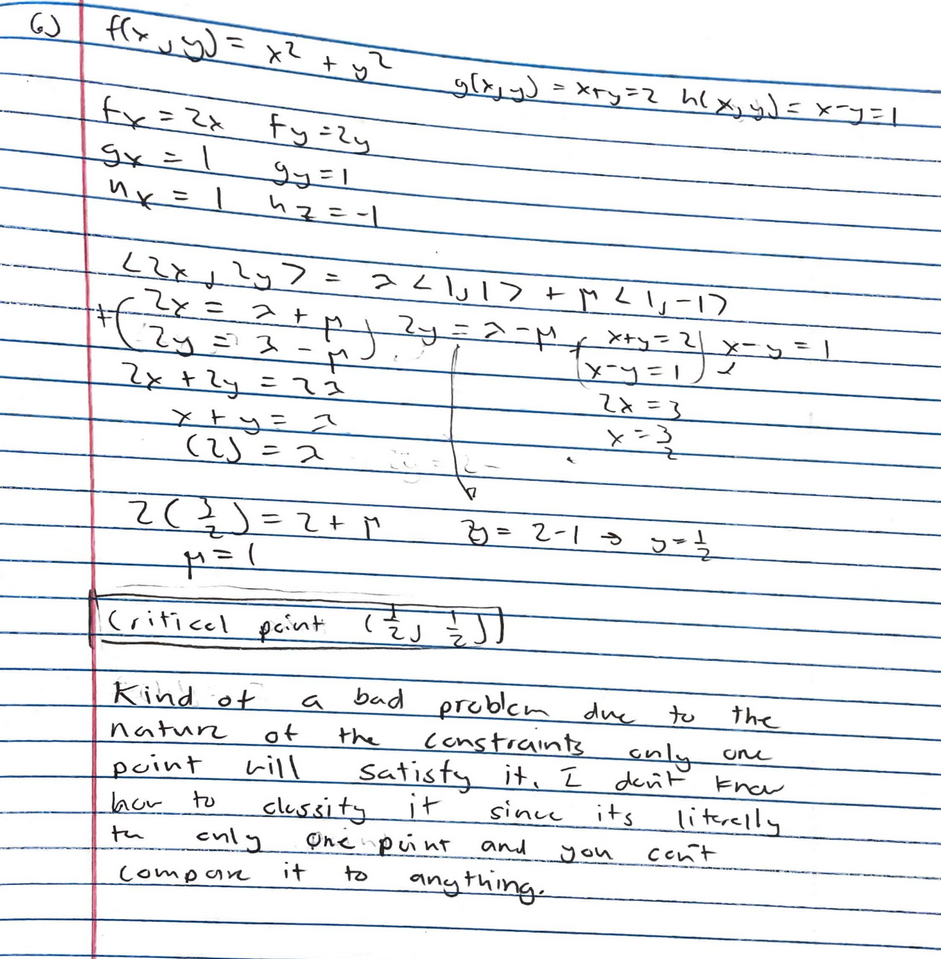 6) f(x, y) = x² + y² g(x,y) = x+y=2 h(x,y) = x-y=1
fx = 2x fy = 2y
gx = 1 gy = 1
hx = 1 hz = -1
<2x, 2y> = λ<1,1> + μ<1,-1>
+(2x = λ + μ 2y = λ - μ +(x+y=2 x-y=1
2y = λ - μ) x-y=1)
2x + 2y = 2λ 2x = 3
x + y = λ x = 3/2
(2) = λ
2(3/2) = 2 + μ 2y = 2-1 → y = 1/2
μ = 1
Critical point (1/2, 1/2)
Kind of a bad problem due to the
nature of the constraints only one
point will satisfy it. I don't know
how to classify it since its literally
the only one point and you can't
compare it to anything.